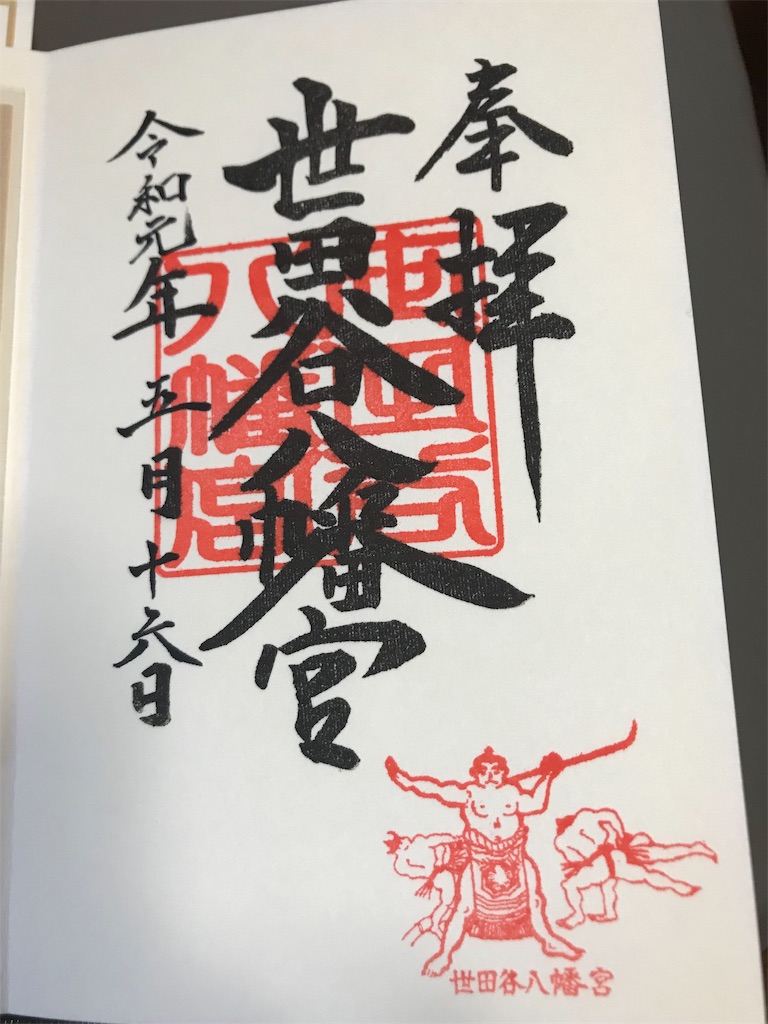 奉拝
世田谷八幡宮
令和元年五月十六日
世田谷八幡宮
世田谷八幡宮